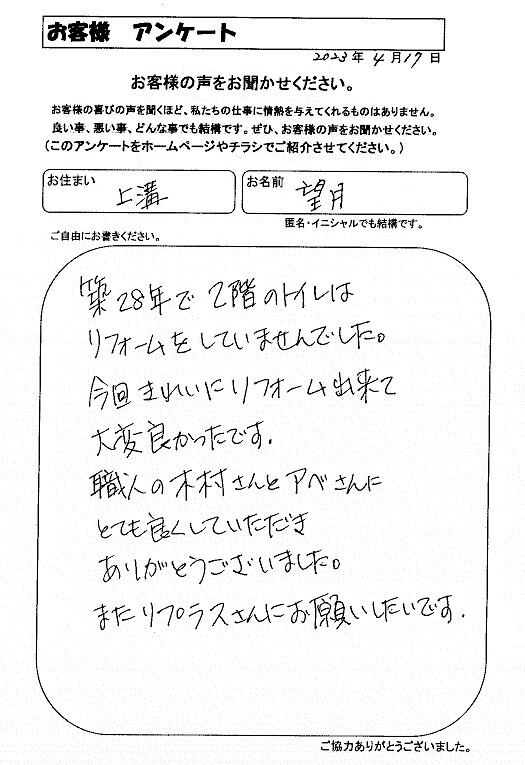 お客様　アンケート
2023年4月17日
お客様の声をお聞かせください。
お客様の喜びの声を聞くほど、私たちの仕事に情熱を与えてくれるものはありません。
良い事、悪い事、どんな事でも結構です。ぜひ、お客様の声をお聞かせください。
(このアンケートをホームページやチラシでご紹介させてください。)
お住まい 上溝 お名前 望月
匿名・イニシャルでも結構です。
ご自由にお書きください。
築28年で2階のトイレは
リフォームをしていませんでした。
今回きれいにリフォーム出来て
大変良かったです.
職人の木村さんとアベさんに
とても良くしていただき
ありがとうございました。
またリプラスさんにお願いしたいです.
ご協力ありがとうございました。